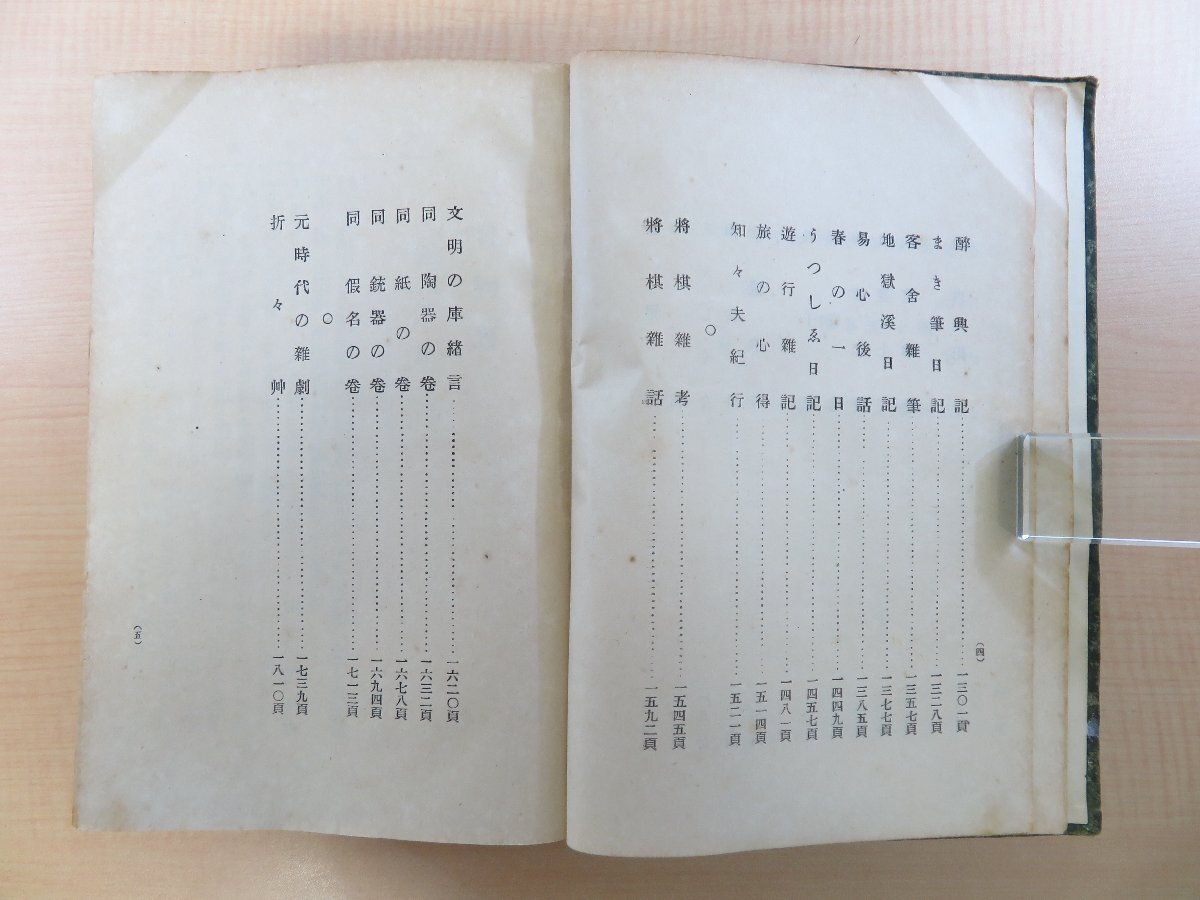 醉興記……………………一三〇一頁
まき筆日記……………………一三二八頁
客舍雜筆……………………一三五七頁
地獄溪日記……………………一三七七頁
易心後話……………………一三八五頁
春の一日……………………一四四九頁
うつしゑ日記……………………一四五七頁
遊行雜記……………………一四八一頁
旅の心得……………………一五一四頁
知々夫紀行……………………一五二一頁
○
將棋雜考……………………一五四五頁
將棋雜話……………………一五九二頁
(四)
文明の庫緒言……………………一六二〇頁
同 陶器の卷……………………一六三二頁
同 紙の卷……………………一六七八頁
同 銃器の卷……………………一六九四頁
同 假名の卷……………………一七一三頁
○
元時代の雜劇……………………一七三九頁
折々艸……………………一八一〇頁
(五)